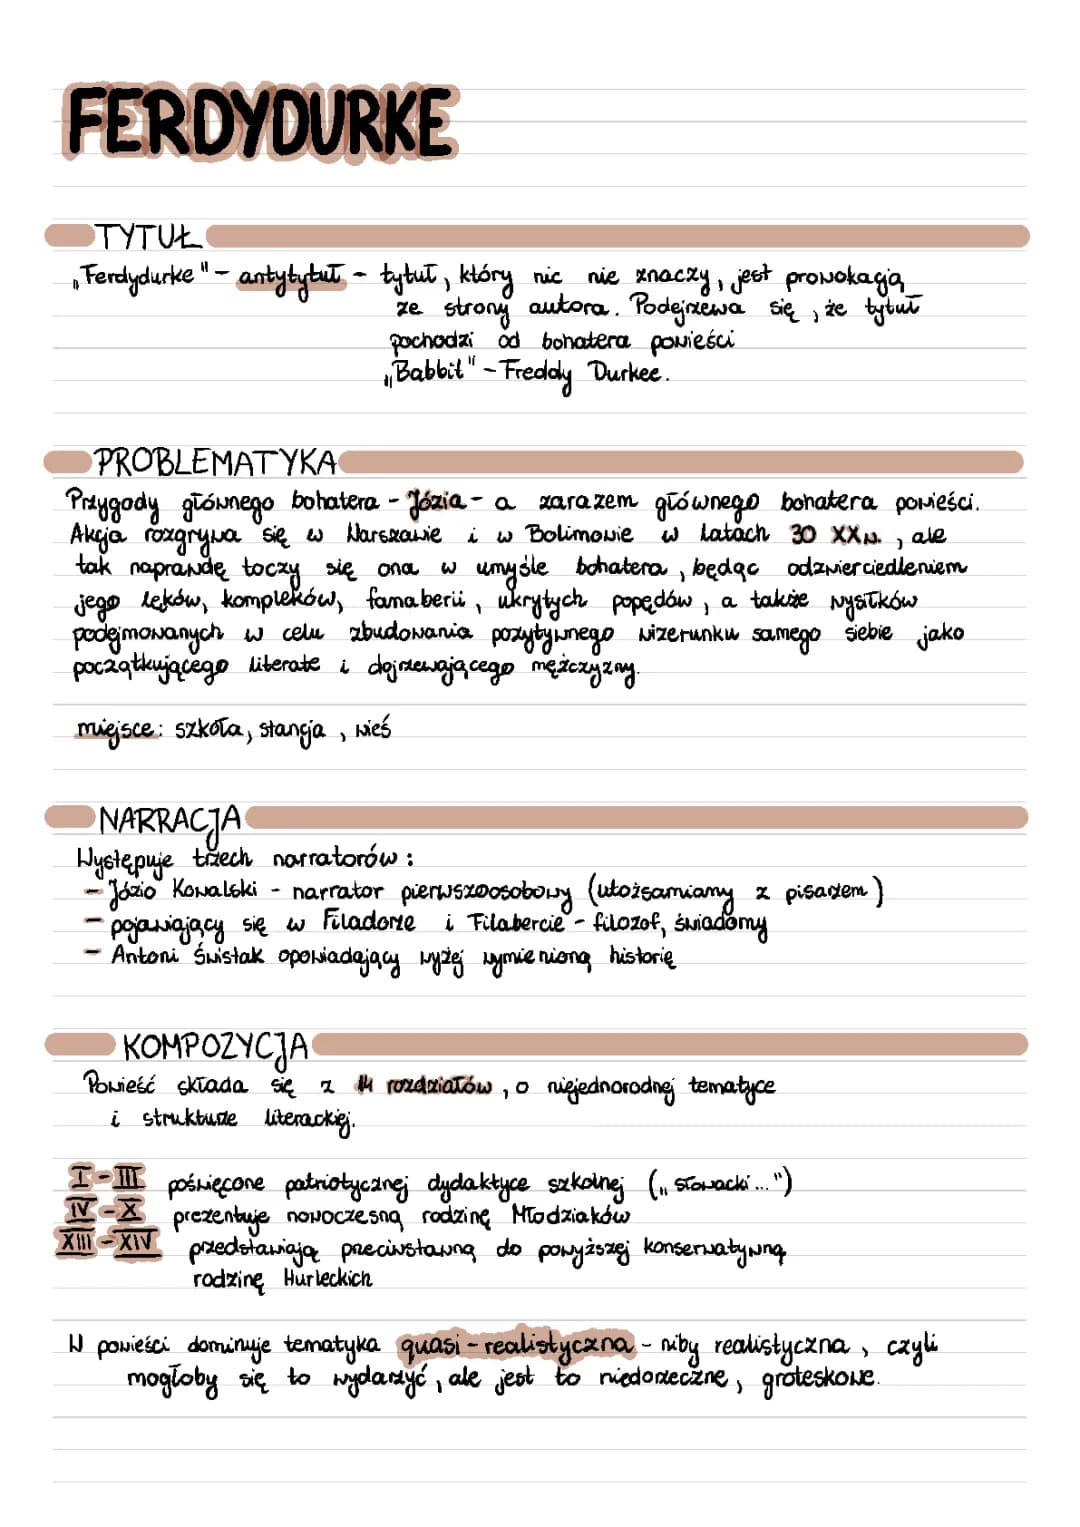 FERDYDURKE
TYTUŁ
„Ferdydurke" - antytytuł - tytuł, który nic nie znaczy, jest prowokacją
ze strony autora. Podejrzewa się, że tytuł
pochodzi od bohatera powieści
„Babbit" - Freddy Durkee.
PROBLEMATYKA
Przygody głównego bohatera - Józia - a zarazem głównego bohatera powieści.
Akcja rozgrywa się w Warszawie i w Bolimowie w latach 30 XXw., ale
tak naprawdę toczy się ona w umyśle bohatera, będąc odzwierciedleniem
jego lęków, kompleków, famaberii, ukrytych popędów, a także wysiłków
podejmowanych w celu zbudowania pozytywnego wizerunku samego siebie jako
początkującego literate i dojrzewającego mężczyzny.
miejsce: szkoła, stancja, wieś
NARRACJA
Występuje trzech narratorów:
- Józio Kowalski - narrator pierwszoosobowy (utożsamiany z pisarzem)
- pojawiający się w Filadorze i Filabercie - filozof, świadomy
- Antoni Świstak opowiadający wyżej wymienioną historię
KOMPOZYCJA
Powieść składa się z 14 rozdziałów, o niejednorodnej tematyce
i strukturze literackiej.
I - III poświęcone patriotycznej dydaktyce szkolnej („Słowacki...")
IV - X prezentuje nowoczesną rodzinę Młodziaków
XIII - XIV przedstawiają przeciwstawną do powyższej konserwatywną
rodzinę Hurleckich
W powieści dominuje tematyka quasi - realistyczna - niby realistyczna, czyli
mogłoby się to wydarzyć, ale jest to niedorzeczne, groteskowe.